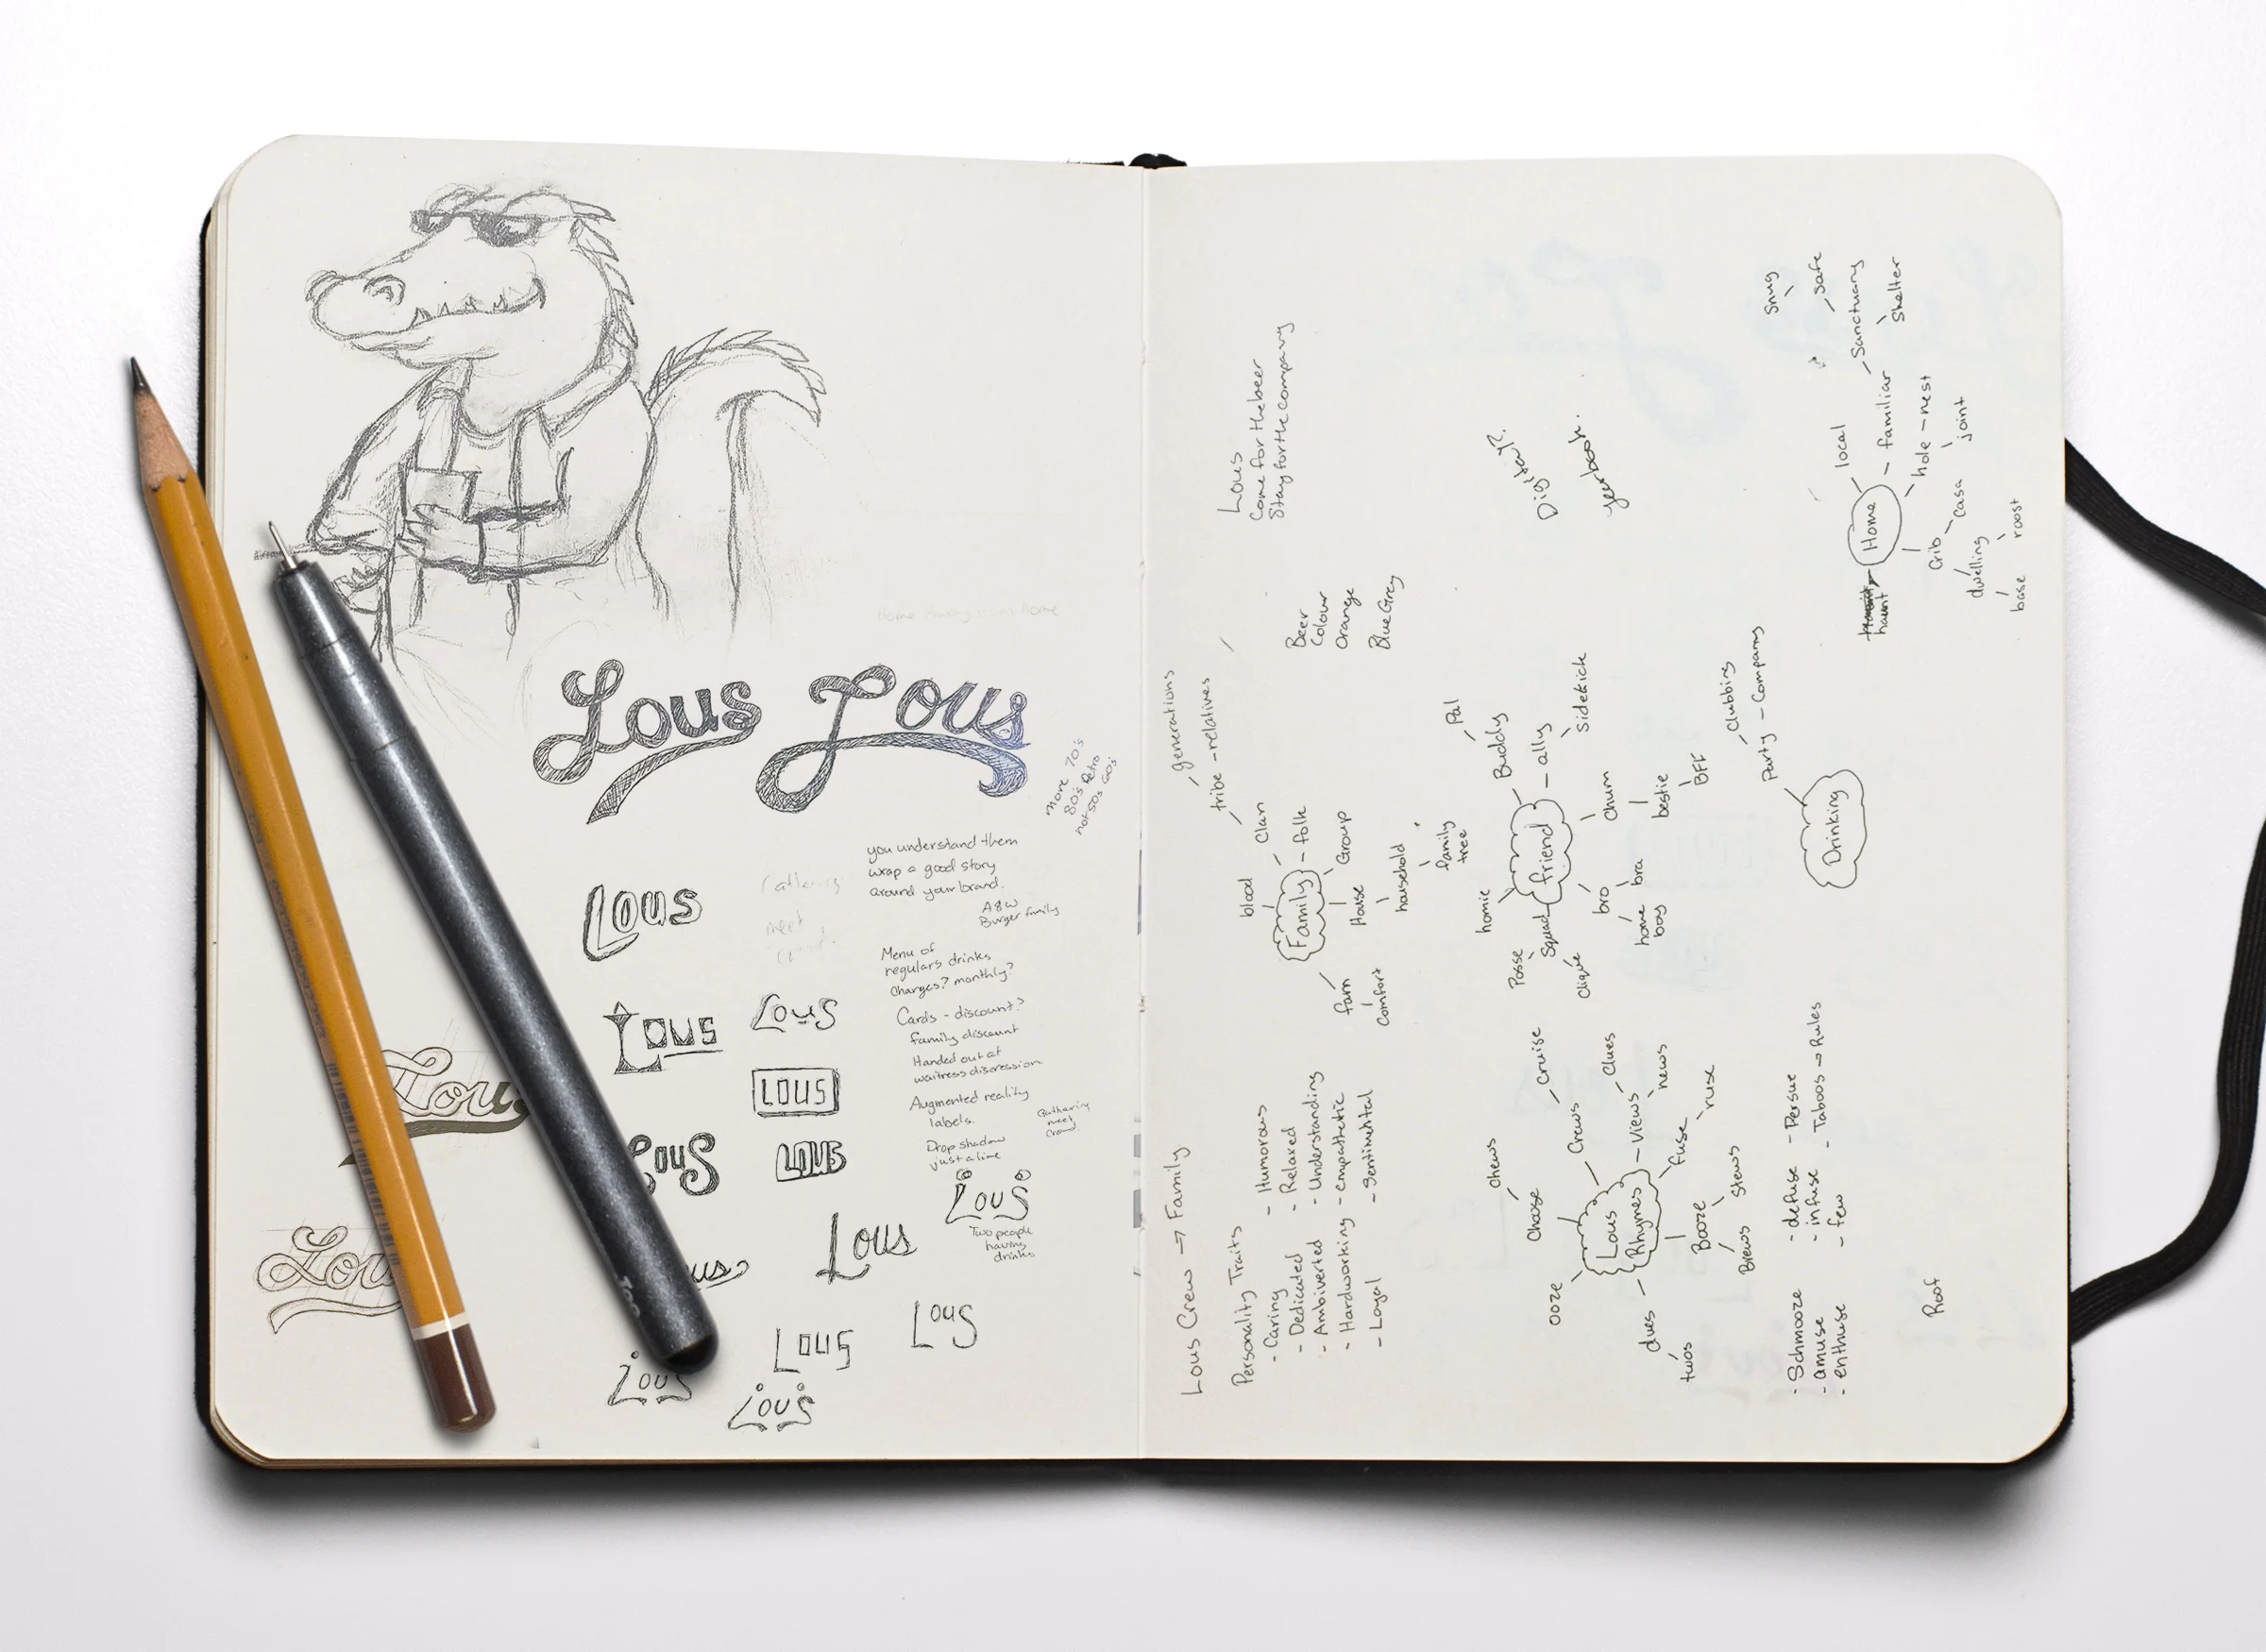 Home Away from home
Lous Lous
more 70's
80's Retro
not 50s 60s
Lous
you understand them
wrap a good story
around your brand.
A&W
Burger family
Gathering
meet
Menu of
regulars drinks
Charges? monthly?
Lous
Lous
Cards - discount?
family discount
Handed out at
waitress discression
Lous
LOUS
Augmented reality
labels.
Gathering
meet
crowd
Drop shadow
just a line
Lous
LOUS
Lous
Two people
having
drinks
Lous
Lous
Lous
Lous
Lous
Lous
Lous Crew → Family
Personality Traits
- Caring
- Dedicated
- Ambiverted
- Hardworking
- Loyal
- Humorous
- Relaxed
- Understanding
- empathetic
- Sentimental
Family
blood
Clan
tribe - relatives
generations
folk
Group
House
household
family
tree
fam
comfort
Beer
Colour
Orange
Blue Grey
Lous
Come for the beer
Stay for the company
Lous
Rhymes
ooze
Choose
chews
Crews
Cruise
Views
Clues
news
fuse
ruse
Booze
Stews
Brews
dues
twos
friend
homie
Squad
Posse
Clique
Buddy
Pal
ally
Sidekick
chum
bestie
BFF
bro
bra
home
boy
yearbook.
- Schmooze
- amuse
- enthuse
- defuse
- infuse
- few
- Persue
- Taboos → Rules
Drinking
Party - Company
Clubbing
Home
haunt
local
familiar
Sanctuary
Safe
Snug
Shelter
hole - nest
joint
Casa
Crib
dwelling
base
roost
Roof